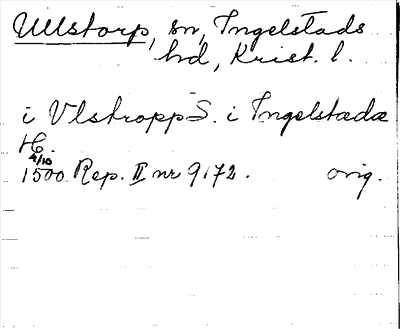 Ullstorp, sn, Ingelstads
hd, Krist. l.
i Vlstropp S. i Ingelstadæ
H.
4/10
1500 Rep. II nr 9172. orig.